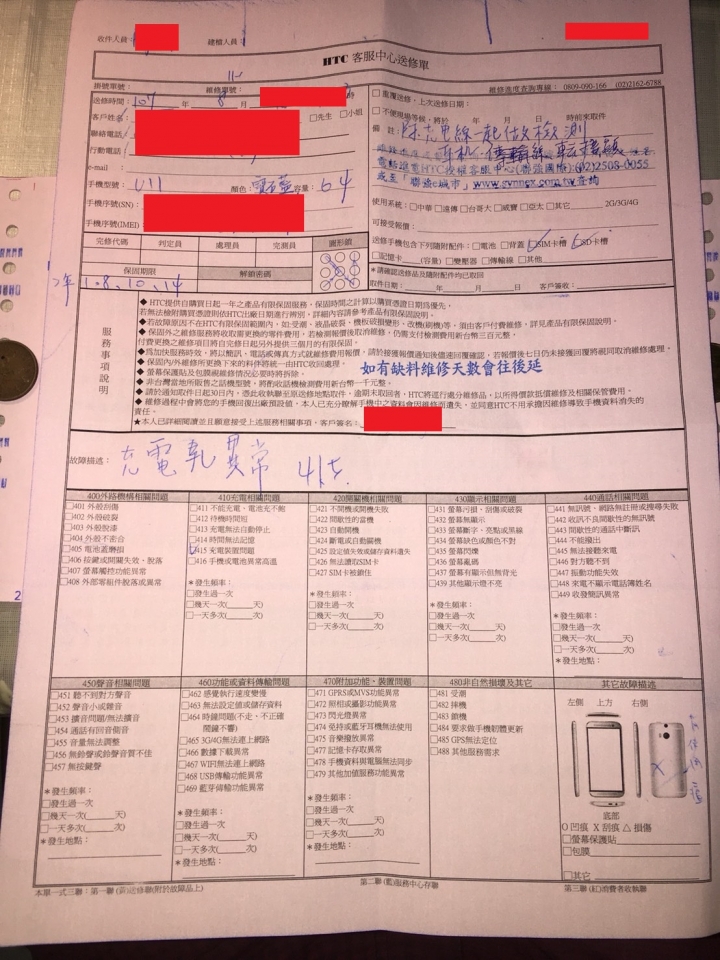 收件人員： 建檔人員：
HTC 客服中心送修單
掛號單號： 維修單號： 維修進度查詢專線： 0809-090-166 (02)2162-6788
送修時間：107 年 8 月
客戶姓名： □先生 □小姐
聯絡電話
行動電話
e-mail
手機型號：U11 顏色：寶石藍 容量：64
手機序號(SN)
手機序號(IMEI)
□重覆送修，上次送修日期：
□不便現場等候，將於 年 月 日 時前來取件
備 註：
除充電線一起做檢測
電話進電HTC授權客服中心(聯強國際):(02)2508-0055
或至「聯強e城市」www.synnex.com.tw查詢
使用系統：□中華 □遠傳 □台哥大 □威寶 □亞太 □其它 2G/3G/4G
可接受報價：
送修手機包含下列隨附配件：□電池 □背蓋 □SIM卡槽 □SD卡槽
□記憶卡 (容量) □變壓器 □傳輸線 □其他
*請確認送修品及隨附配件均已取回
取件日期： 年 月 日 客戶簽收：
完修代碼 判定員 處理員 完測員 圖形鎖
保固期限 解鎖密碼
108.10.14
服務事項說明
◆ HTC提供自購買日起一年之產品有限保固服務，保固時間之計算以購買憑證日期為優先，
若無法檢附購買憑證則依HTC出廠日期進行辨別，詳細內容請參考產品有限保固說明。
◆ 若故障原因不在HTC有限保固範圍內，如:受潮、液晶破裂、機板破損變形、改機(刷機)等，須由客戶付費維修，詳見產品有限保固說明。
◆ 保固外之維修服務將收取需更換的零件費用，若報價後取消維修，仍需支付檢測費用新台幣三百元整，
付費更換之維修項目將自完修日起另外提供三個月的有限保固。
◆ 為加快服務時效，將以簡訊、電話或傳真方式就維修費用報價，請於接獲報價通知後儘速回覆確認，若報價後七日仍未接獲回覆將視同取消維修處理。
◆ 保固內/外維修所更換下來的料件將統一由HTC收回處理。
◆ 螢幕保護貼及包膜視維修情況必要時將拆除。
如有缺料維修天數會往後延
◆ 非台灣當地所販售之話機型號，將酌收話機檢測費用新台幣一千元整。
◆ 請於通知取件日起30日內，憑此收執聯至原送修地點取件，逾期未取回者，HTC將逕行處分維修品，以所得價款抵償維修及相關保管費用。
◆ 維修過程中會將您的手機回復出廠預設值，本人已充分瞭解手機中之資料會因維修而遺失，並同意HTC不用承擔因維修導致手機資料消失的
責任。
★本人已詳細閱讀並且願意接受上述服務相關事項，客戶簽名：
故障描述： 充電孔異常 415
400外路機構相關問題
□401 外殼刮傷
□402 外殼破裂
□403 外殼脫漆
□404 外殼不密合
□405 電池蓋磨損
□406 按鍵或開關失效、脫落
□407 螢幕觸控功能異常
□408 外部零組件脫落或異常
410充電相關問題
□411 不能充電、電池充不飽
□412 待機時間短
□413 充電無法自動停止
□414 時間無法記憶
□415 充電裝置問題
□416 手機或電池異常高溫
＊發生頻率：
□發生過一次
□幾天一次(____天)
□一天多次(____次)
420開關機相關問題
□421 不開機或開機失敗
□422 間歇性的當機
□423 自動開機
□424 斷電或自動關機
□425 設定值失效或儲存資料遺失
□426 無法讀取SIM卡
□427 SIM卡被鎖住
＊發生頻率：
□發生過一次
□幾天一次(____天)
□一天多次(____次)
430顯示相關問題
□431 螢幕污損、刮傷或破裂
□432 螢幕無顯示
□433 螢幕斷字、亮點或黑線
□434 螢幕缺色或顏色不對
□435 螢幕閃爍
□436 螢幕亂碼
□437 螢幕有顯示但無背光
□439 其他顯示燈不亮
＊發生頻率：
□發生過一次
□幾天一次(____天)
□一天多次(____次)
440通話相關問題
□441 無訊號、網路無註冊或搜尋失敗
□442 收訊不良間歇性的無訊號
□443 間歇性的通話中斷訊
□444 不能撥出
□445 無法接聽來電
□446 對方聽不到
□447 振動功能失效
□448 來電不顯示電話簿姓名
□449 收發簡訊異常
＊發生頻率：
□發生過一次
□幾天一次(____天)
□一天多次(____次)
＊發生地點：
450聲音相關問題
□451 聽不到對方聲音
□452 聲音小或雜音
□453 擴音問題/無法擴音
□454 通話有回音個音
□455 音量無法調整
□456 無鈴聲或鈴聲音質不佳
□457 無按鍵聲
＊發生頻率：
□發生過一次
□幾天一次(____天)
□一天多次(____次)
＊發生地點：
460功能或資料傳輸問題
□462 感覺執行速度變慢
□463 無法設定值或儲存資料
□464 時鐘問題(不走、不正確
鬧鐘不響)
□465 3G/4G無法連上網路
□466 數據下載異常
□467 WIFI無法連上網路
□468 USB傳輸功能異常
□469 藍芽傳輸功能異常
＊發生頻率：
□發生過一次
□幾天一次(____天)
□一天多次(____次)
＊發生地點：
470附加功能、裝置問題
□471 GPRS或MVS功能異常
□472 照相或攝影功能異常
□473 閃光燈異常
□474 免持或藍牙耳機無法使用
□475 音樂撥放異常
□477 記憶卡存取異常
□478 手機資料與電腦無法同步
□479 其他加值服務功能異常
＊發生頻率：
□發生過一次
□幾天一次(____天)
□一天多次(____次)
＊發生地點：
480非自然損壞及其它
□481 受潮
□482 摔機
□483 鎖機
□484 要求做手機韌體更新
□485 GPS無法定位
□488 其他服務需求
其它故障描述
左側 上方 右側
底部
O 凹痕 X 刮痕 △ 損傷
□螢幕保護貼
□包膜
□其它
本單一式三聯：第一聯(黃)送修聯(附於故障品上) 第二聯(藍)服務中心存聯 第三聯(紅)消費者收執聯